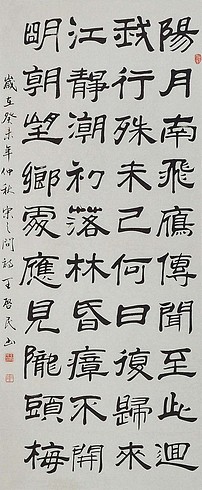 陽月南飛鴈傳聞至此迴
我行殊未已何日復歸來
江靜潮初落林昏瘴不開
明朝望鄉處應見隴頭梅
歲在癸未年仲秋宋之問詩 啓民書